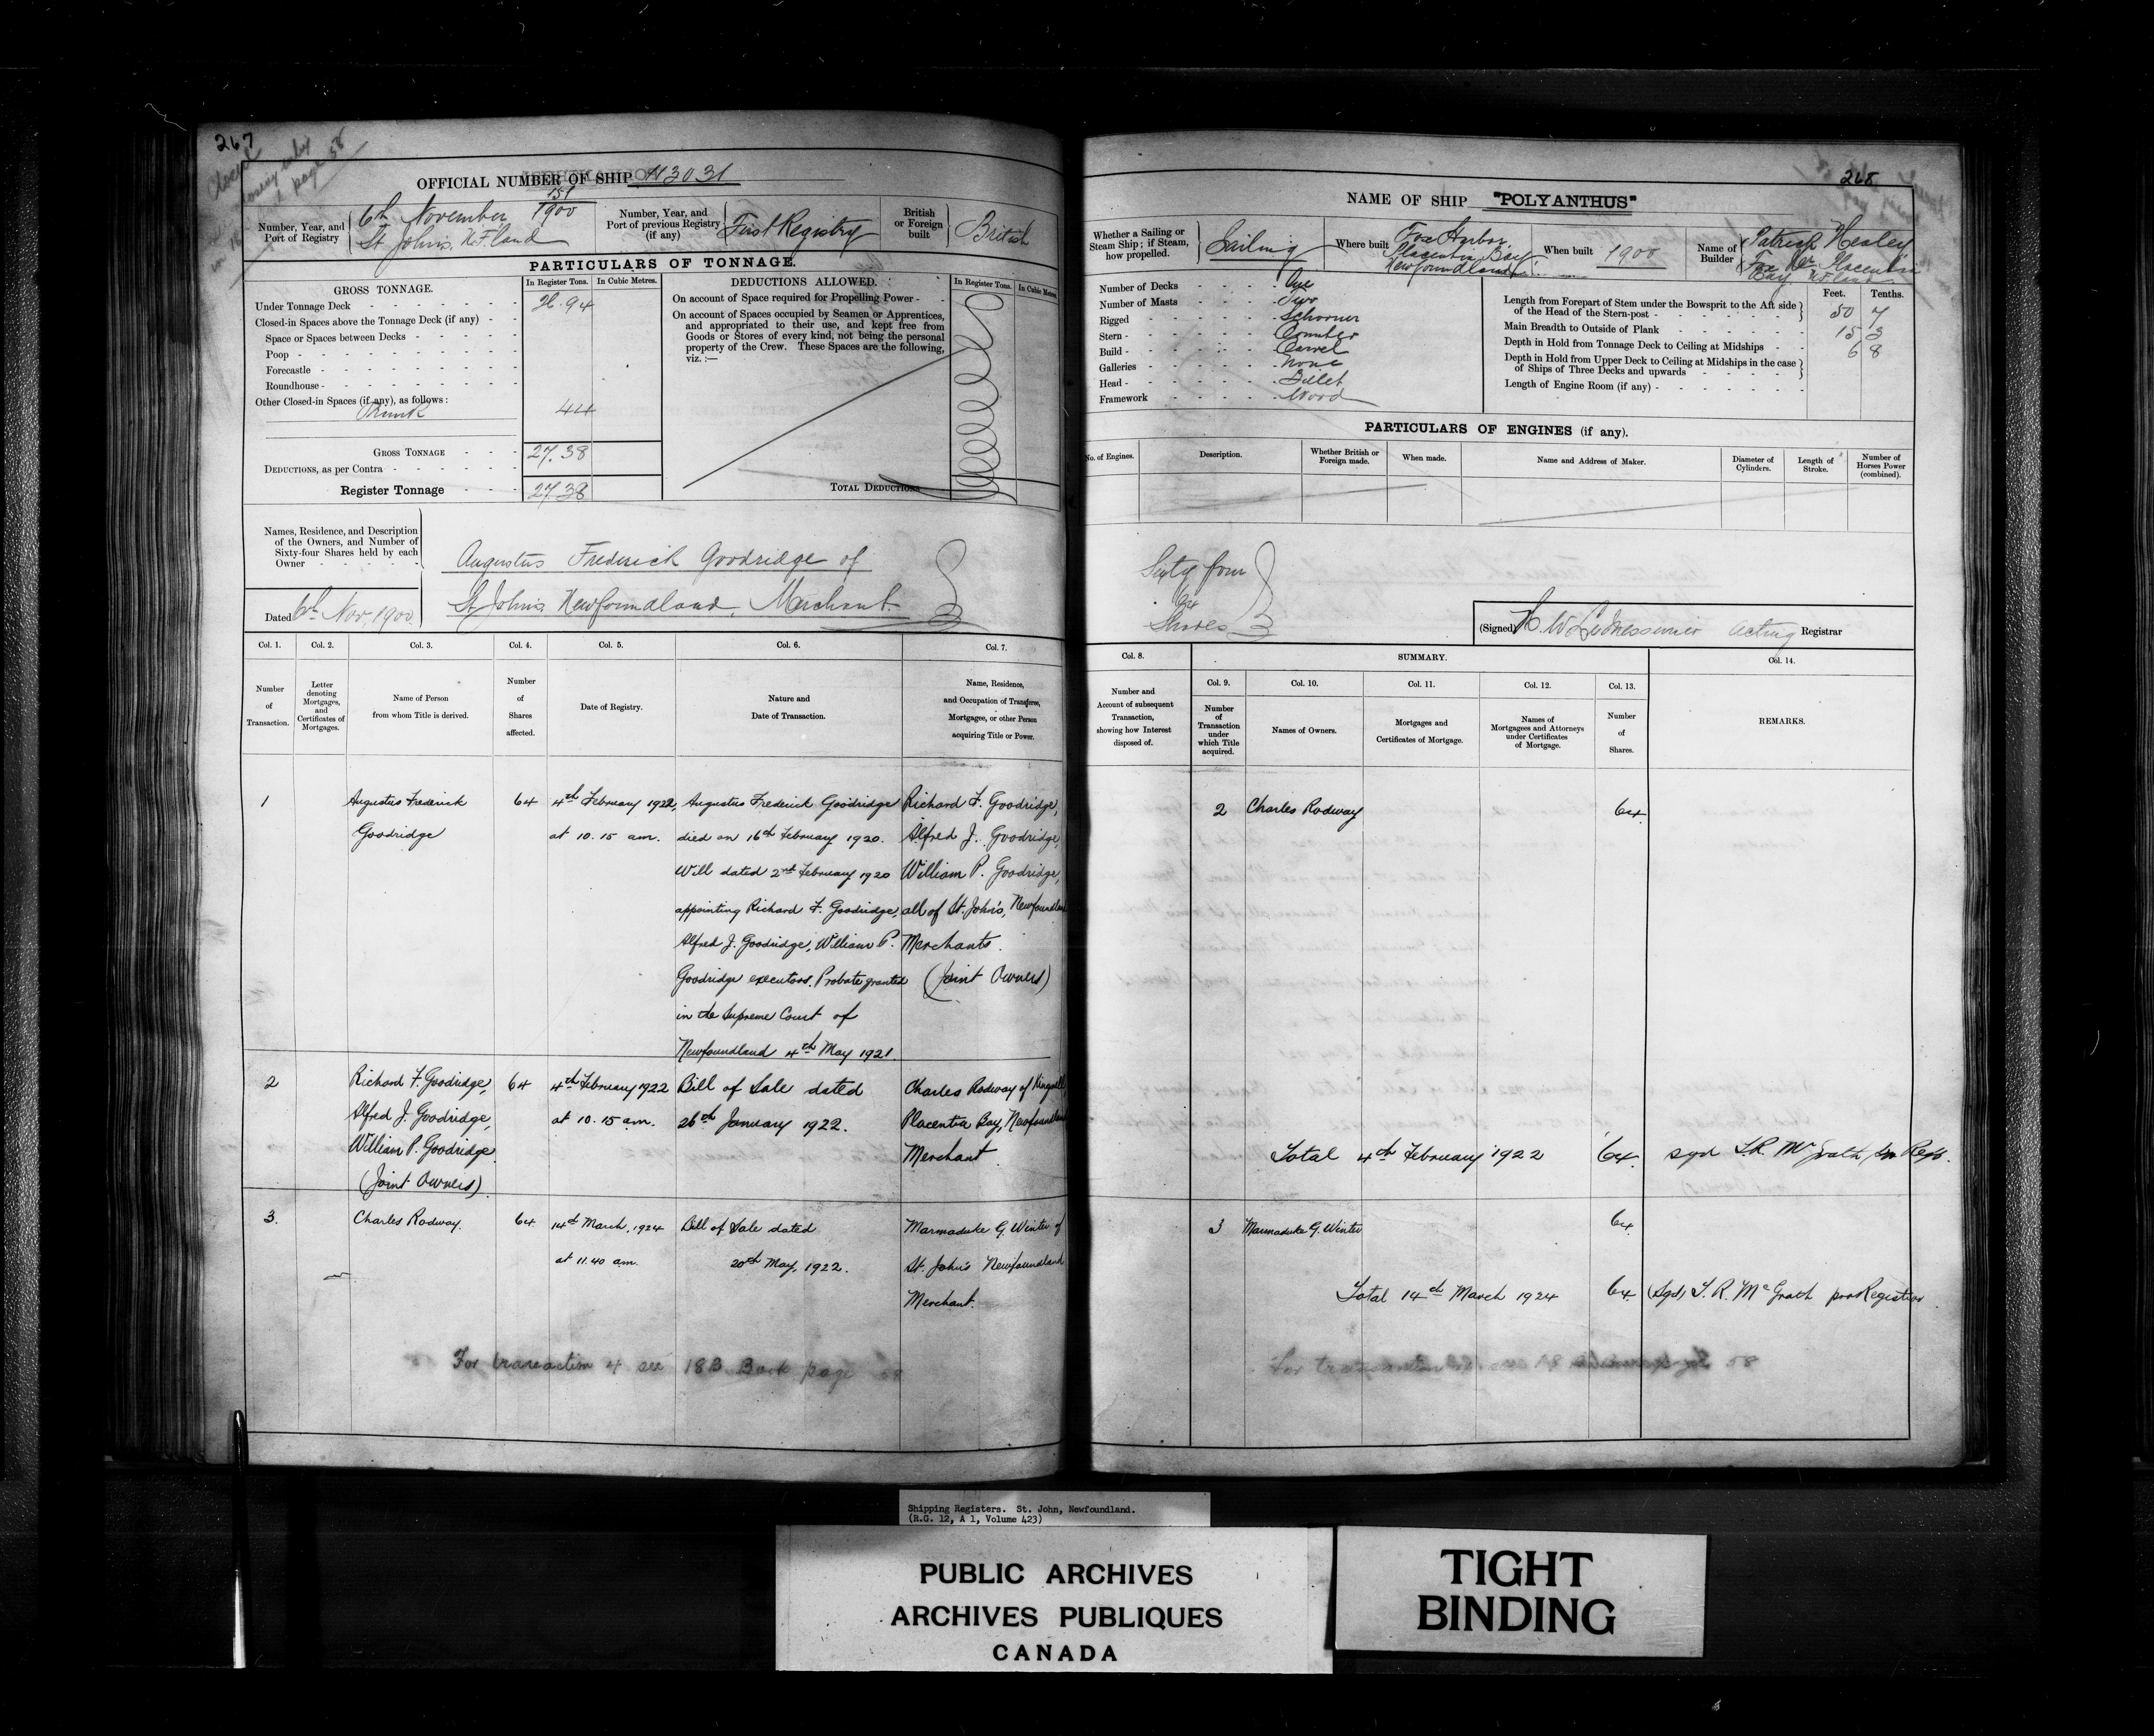 267
Closed
page 58
OFFICIAL NUMBER OF SHIP 113031
Number, Year, and Port of Registry
6th November 151/1900
St John's, N.F.land
Number, Year, and Port of previous Registry (if any)
First Registry
British or Foreign built
British
PARTICULARS OF TONNAGE.
GROSS TONNAGE.
In Register Tons.
In Cubic Metres.
Under Tonnage Deck 26.94
Closed-in Spaces above the Tonnage Deck (if any)
Space or Spaces between Decks
Poop
Forecastle
Roundhouse
Other Closed-in Spaces (if any), as follows:
Trunk 44
GROSS TONNAGE 27.38
DEDUCTIONS, as per Contra
Register Tonnage 27.38
DEDUCTIONS ALLOWED.
In Register Tons.
In Cubic Metres.
On account of Space required for Propelling Power
On account of Spaces occupied by Seamen or Apprentices,
and appropriated to their use, and kept free from
Goods or Stores of every kind, not being the personal
property of the Crew. These Spaces are the following,
viz.:—
TOTAL DEDUCTIONS
Names, Residence, and Description
of the Owners, and Number of
Sixty-four Shares held by each
Owner
Dated 6th Nov, 1900.
Augustus Frederick Goodridge of
St John's Newfoundland, Merchant
Col. 1.
Number
of
Transaction.
Col. 2.
Letter
denoting
Mortgages,
and
Certificates of
Mortgages.
Col. 3.
Name of Person
from whom Title is derived.
Col. 4.
Number
of
Shares
affected.
Col. 5.
Date of Registry.
Col. 6.
Nature and
Date of Transaction.
Col. 7.
Name, Residence,
and Occupation of Transferee,
Mortgagee, or other Person
acquiring Title or Power.
1
Augustus Frederick
Goodridge
64
4th February 1922,
at 10.15 am.
Augustus Frederick Goodridge
died on 16th February 1920.
Will dated 2nd February 1920
appointing Richard F. Goodridge,
Alfred J. Goodridge, William P.
Goodridge executors. Probate granted
in the Supreme Court of
Newfoundland 4th May 1921.
Richard F. Goodridge,
Alfred J. Goodridge,
William P. Goodridge,
all of St. John's,
Merchants.
(Joint Owners)
2
Richard F. Goodridge,
Alfred J. Goodridge,
William P. Goodridge
(Joint Owners).
64
4th February 1922
at 10.15 am.
Bill of Sale dated
26th January 1922.
Charles Rodway of
Placentia Bay,
Merchant
3.
Charles Rodway.
64
14th March, 1924
at 11.40 am.
Bill of Sale dated
20th May, 1922.
Marmaduke G. Winter of
St. John's Newfoundland
Merchant.
For transaction 4 see 18B Book page 58
268
NAME OF SHIP "POLYANTHUS"
Whether a Sailing or
Steam Ship; if Steam,
how propelled.
Sailing
Where built
Fox Harbor,
Placentia Bay
Newfoundland
When built 1900
Name of Builder
Patrick Healey
Placentia
Bay
Number of Decks One
Number of Masts Two
Rigged Schooner
Stern Counter
Build Carvel
Galleries None
Head Billet
Framework Wood
Feet. Tenths.
Length from Forepart of Stem under the Bowsprit to the Aft side
of the Head of the Stern-post 50 7
Main Breadth to Outside of Plank 15 3
Depth in Hold from Tonnage Deck to Ceiling at Midships 6 8
Depth in Hold from Upper Deck to Ceiling at Midships in the case
of Ships of Three Decks and upwards
Length of Engine Room (if any)
PARTICULARS OF ENGINES (if any).
No. of Engines.
Description.
Whether British or
Foreign made.
When made.
Name and Address of Maker.
Diameter of
Cylinders.
Length of
Stroke.
Number of
Horses Power
(combined).
Sixty four
64
Shares
(Signed) H. W. acting Registrar
Col. 8.
Number and
Account of subsequent
Transaction,
showing how Interest
disposed of.
SUMMARY.
Col. 9.
Number
of
Transaction
under
which Title
acquired.
Col. 10.
Names of Owners.
Col. 11.
Mortgages and
Certificates of Mortgage.
Col. 12.
Names of
Mortgagees and Attorneys
under Certificates
of Mortgage.
Col. 13.
Number
of
Shares.
Col. 14.
REMARKS.
2 Charles Rodway 64
Total 4th February 1922 64. sgd T.R. McGrath, Regr.
3 Marmaduke G. Winter 64
Total 14th March 1924 64 (Sgd) T. R. McGrath pro Registrar
For transaction see 18 58
Shipping Registers. St. John, Newfoundland.
(R.G. 12, A 1, Volume 423)
PUBLIC ARCHIVES
ARCHIVES PUBLIQUES
CANADA
TIGHT
BINDING